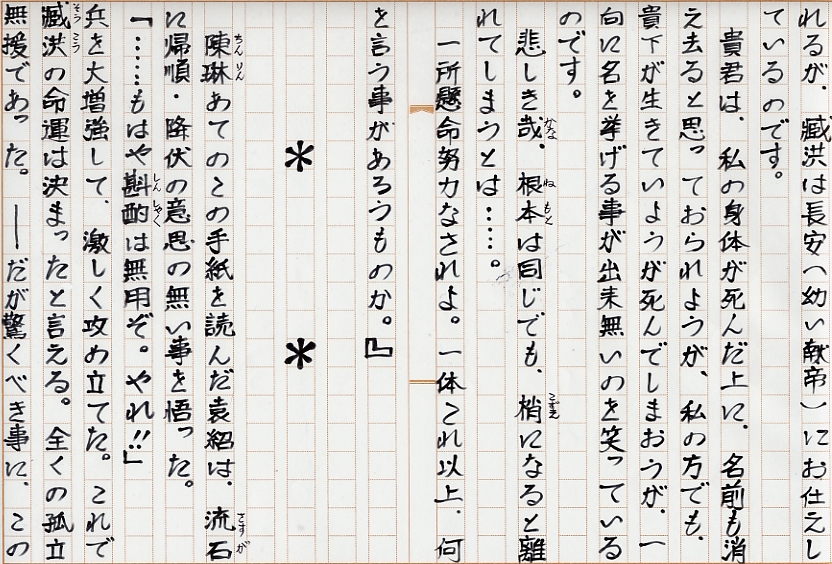 れるが、臧洪は長安へ幼い献帝)にお仕えし
ているのです。
貴君は、私の身体が死んだ上に、名前も消
え去ると思っておられようが、私の方でも、
貴下が生きていようが死んでしまおうが、一
向に名を挙げる事が出来無いのを笑っている
のです。
悲しき哉、根本は同じでも、梢になると離
かな ねもと こずえ
れてしまうとは……。
一所懸命努力なされよ。一体これ以上、何
を言う事があろうものか。』
* *
陳琳あてのこの手紙を読んだ袁紹は、流石
ちんりん さすが
に帰順・降伏の意思の無い事を悟った。
「……もはや斟酌は無用ぞ。やれ!!」
しんしゃく
兵を大増強して、激しく攻め立てた。これで
臧洪の命運は決まったと言える。全くの孤立
そうこう
無援であった。――だが驚くべき事に、この